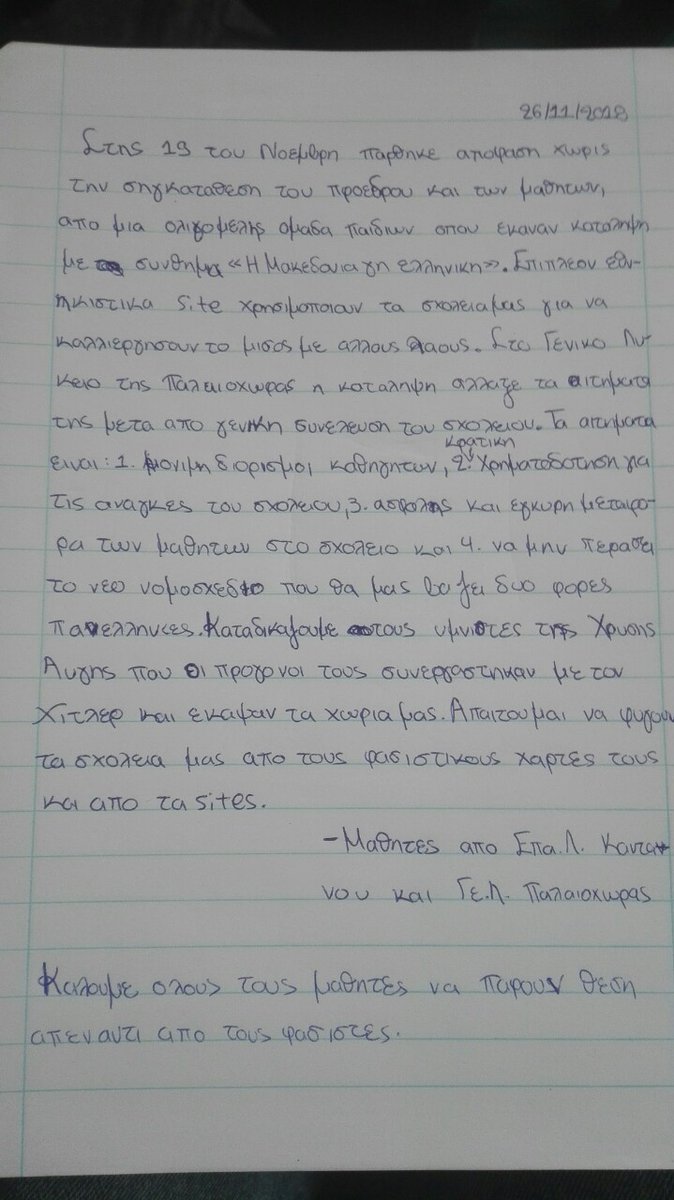 26/11/2018
Στης 19 του Νοεμβρη παρθηκε αποφαση χωρις
την σηγκαταθεση του προεδρου και των μαθητων,
απο μια ολιγομελης ομαδα παιδιων οπου εκαναν καταληψη
με συνθημα «Η Μακεδονια γη ελληνικη». Επιπλεον εθν-
ηκιστικα site χρησιμοποιουν τα σχολεια μας για να
καλλιεργησουν το μισος με αλλους λαους. Στο Γενικο Λυ-
κειο της Παλαιοχωρας η καταληψη αλλαξε τα αιτηματα
της μετα απο γενικη συνελευση του σχολειου. Τα αιτηματα
κρατικη
ειναι: 1. μονιμη διορισμοι καθηγητων, 2. χρηματοδοτηση για
τις αναγκες του σχολειου, 3. ασφαλης και εγκυρη μεταφο-
ρα των μαθητων στο σχολειο και 4. να μην περασει
το νεο νομοσχεδιο που θα μας βαζει δυο φορες
πανελληνιες. Καταδικαζουμε τους υμνιστες της Χρυσης
Αυγης που οι προγονοι τους συνεργαστηκαν με τον
Χιτλερ και εκαψαν τα χωρια μας. Απαιτουμαι να φυγουν
τα σχολεια μας απο τους φασιστικους χαρτες τους
και απο τα sites.
-Μαθητες απο Επα.Λ. Καντα-
νου και Γε.Λ. Παλαιοχωρας
Καλουμε ολους τους μαθητες να παρουν θεση
απεναντι απο τους φασιστες.